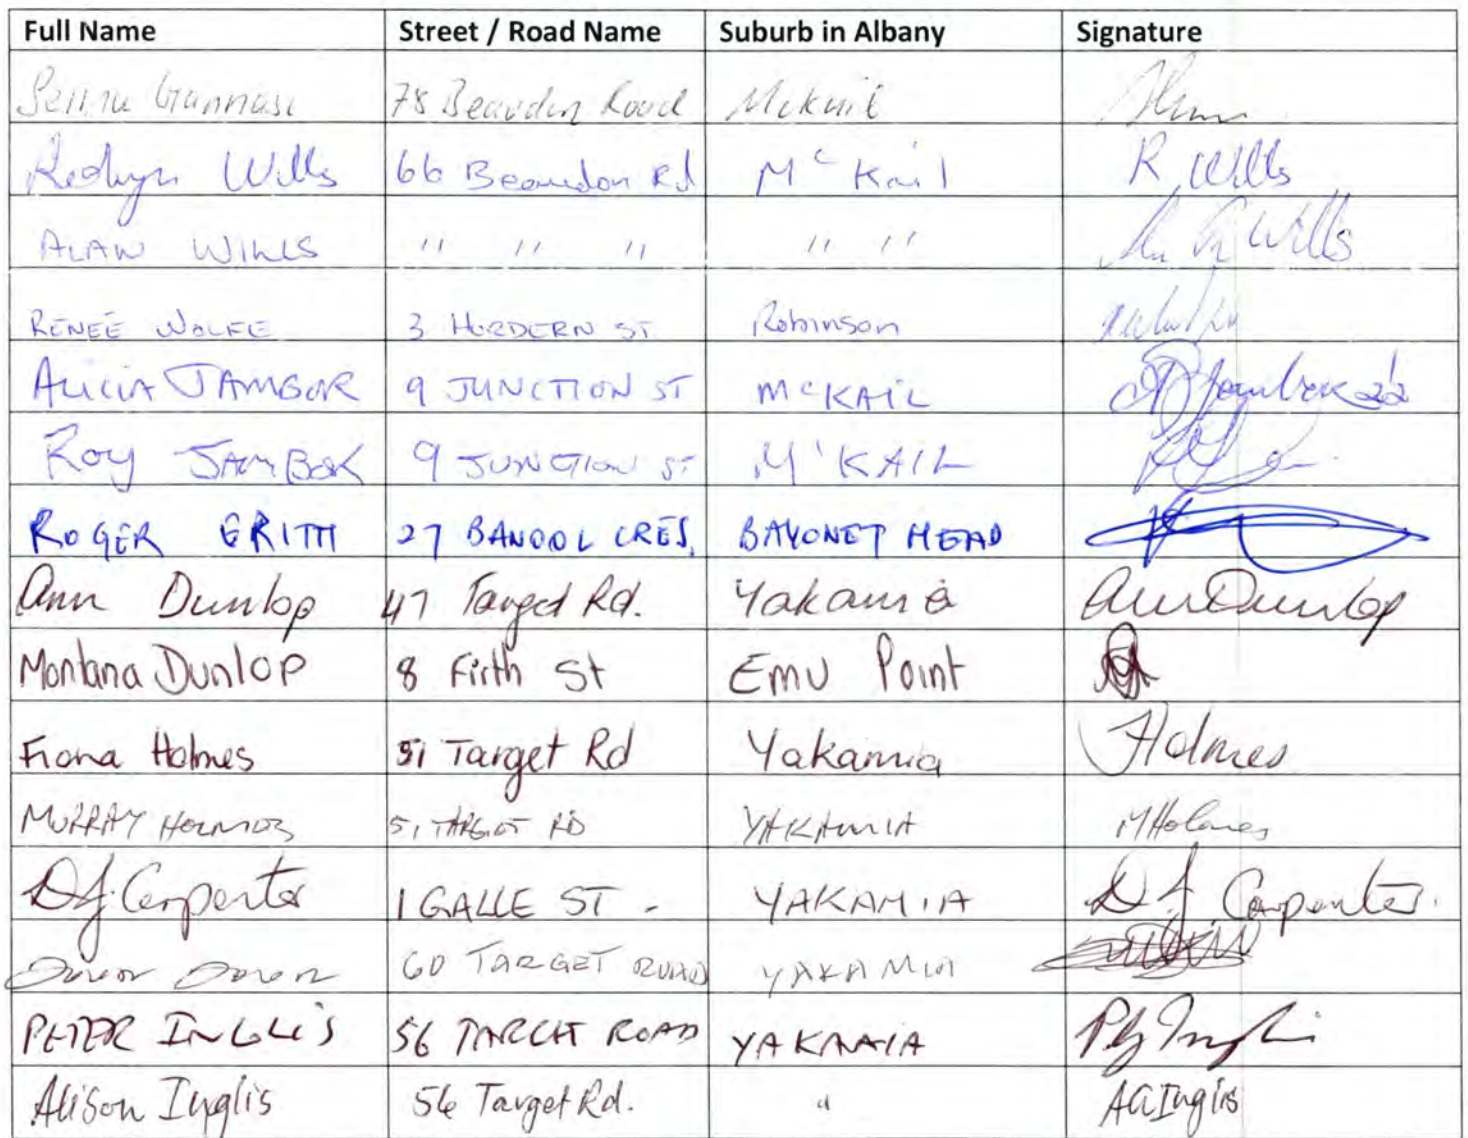 Full Name Street / Road Name Suburb in Albany Signature
78 Beaudon Road Mckail
Wills 66 Beaudon Rd Mc Kail R Wills
ALAN WILLS " " " " " Wills
RENEÉ WOLFE 3 HORDERN ST. Robinson
ALICIA JAMBOR 9 JUNCTION ST McKAIL
ROY JAMBOR 9 JUNCTION ST M'KAIL
ROGER GRITH 27 BANOOL CRES, BAYONET HEAD
Ann Dunlop 47 Target Rd. Yakamia Ann Dunlop
Montana Dunlop 8 Firth St Emu Point
Fiona Holmes 51 Target Rd Yakamia Holmes
MURRAY HOLMES 51 TARGET RD YAKAMIA MHolmes
DJ. Carpenter 1 GALLE ST - YAKAMIA D J Carpenter.
60 TARGET ROAD YAKAMIA
PETER INGLIS 56 TARGET ROAD YAKAMIA
Alison Inglis 56 Target Rd. " AAInglis